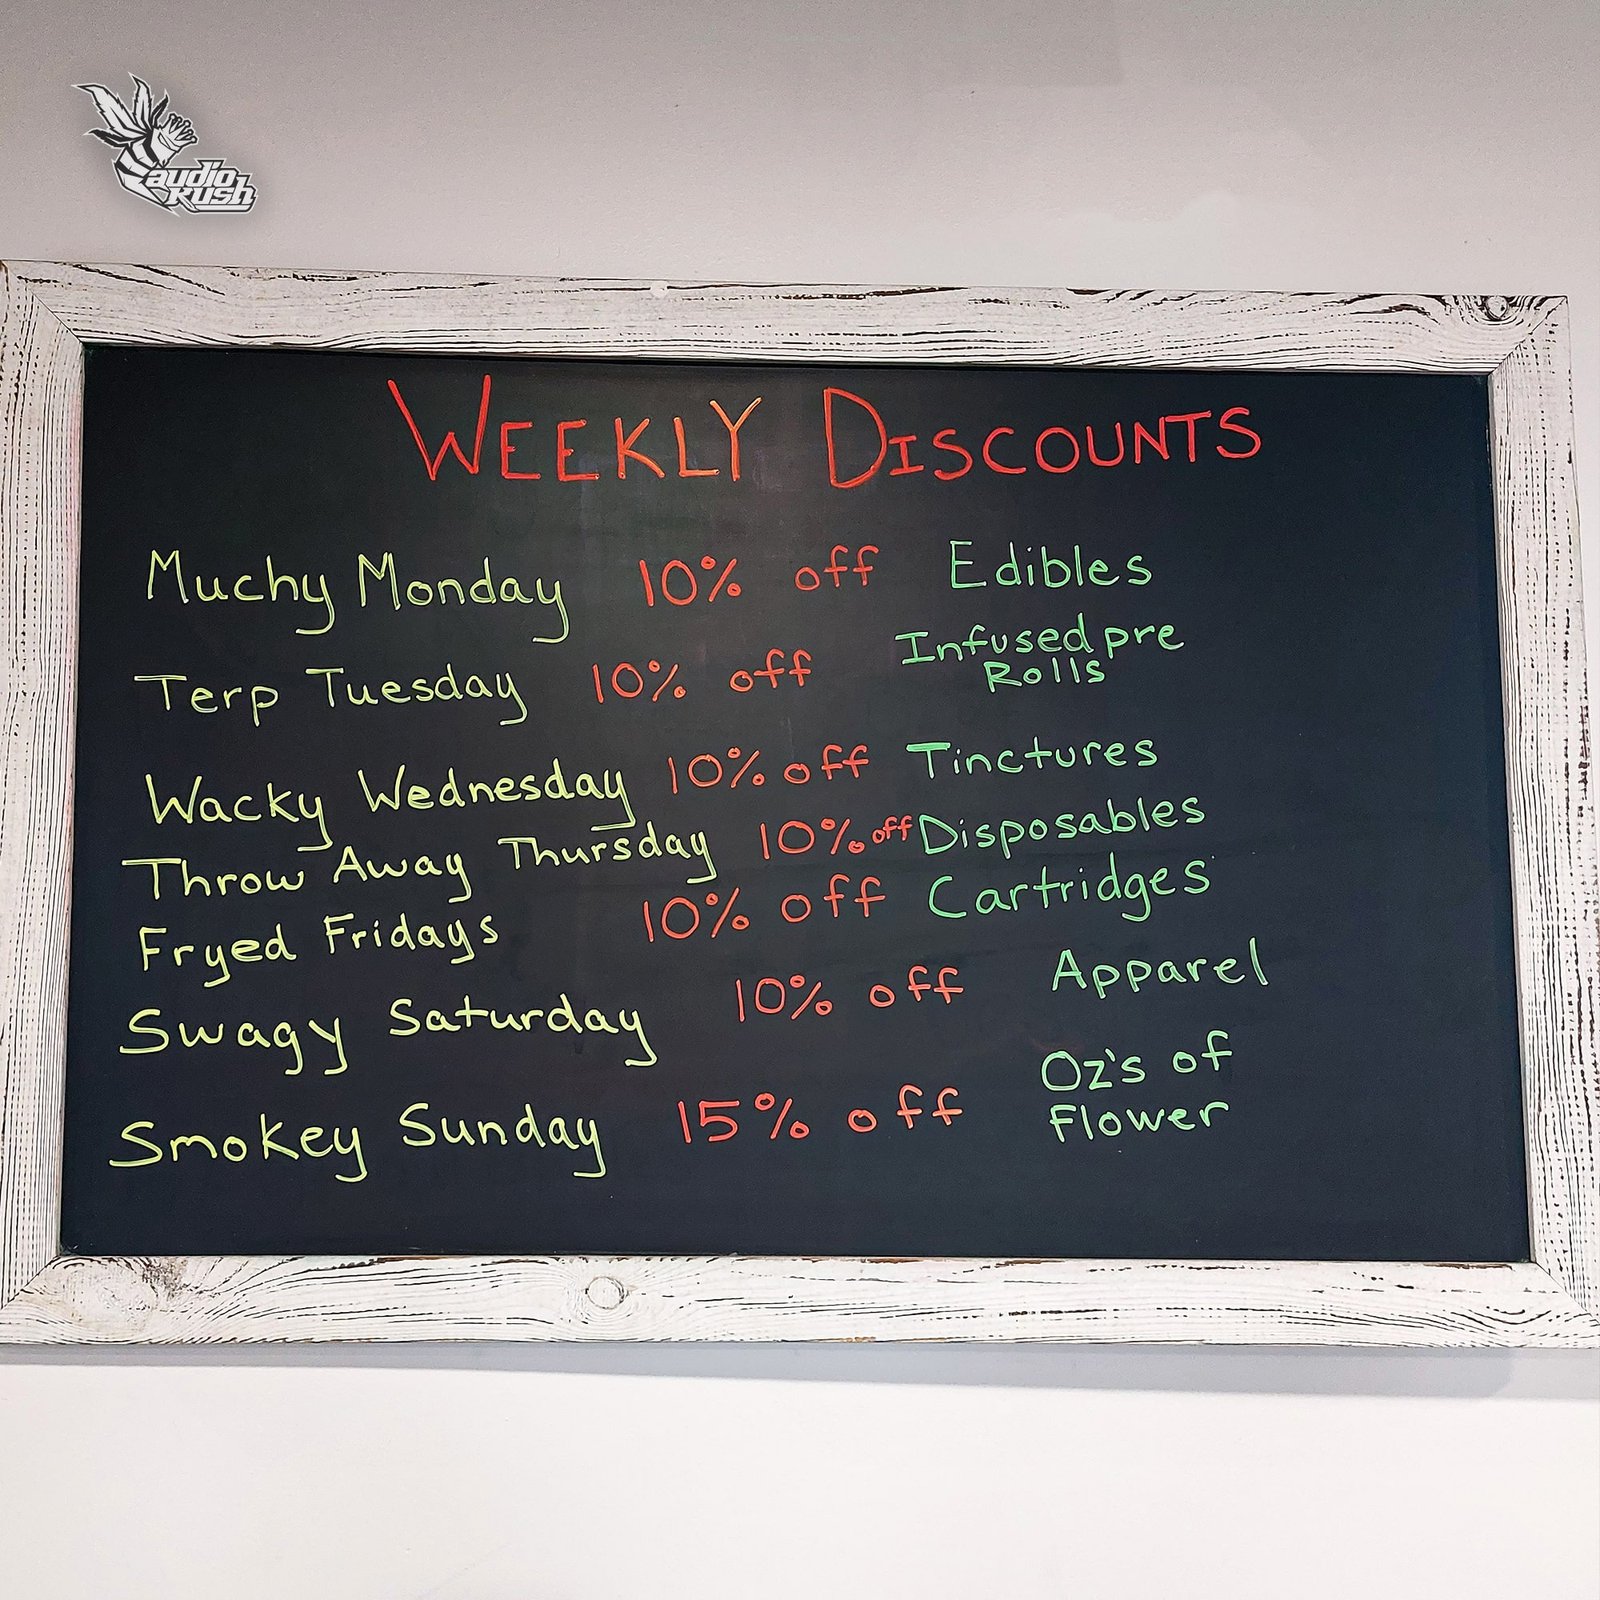 audio
kush
WEEKLY DISCOUNTS
Muchy Monday 10% off Edibles
Terp Tuesday 10% off Infused pre
Rolls
Wacky Wednesday 10% off Tinctures
Throw Away Thursday 10% off Disposables
Fryed Fridays 10% off Cartridges
Swagy Saturday 10% off Apparel
Smokey Sunday 15% off Oz's of
Flower